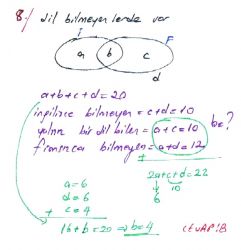 8./ dil bilmeyenlerde var
İ F
a b c
d
a+b+c+d=20
ingilizce bilmeyen=c+d=10
yalnız bir dil bilen=a+c=10 b=?
fransızca bilmeyen=a+d=12
+
2a+c+d=22
6 10
a=6
d=6
c=4
+
16+b=20 ⇒ b=4 CEVAP:B